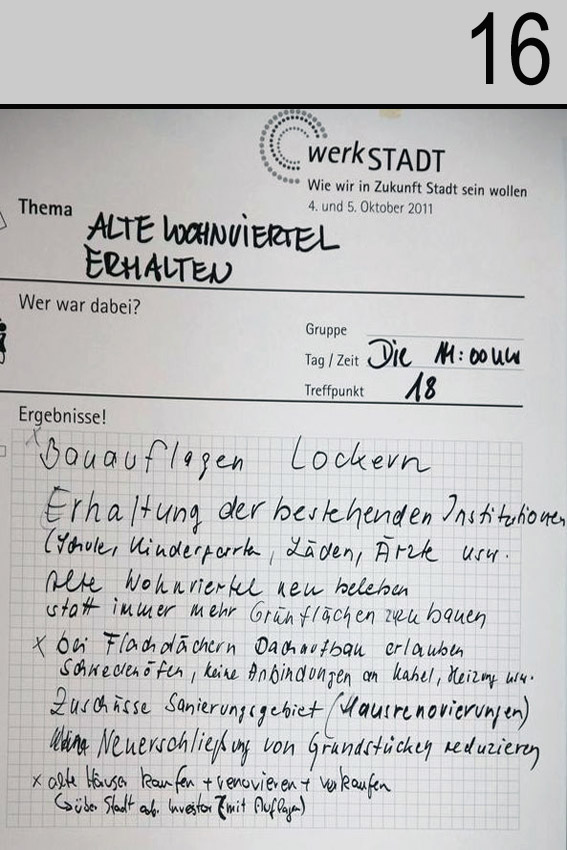 16
werkSTADT
Wie wir in Zukunft Stadt sein wollen
4. und 5. Oktober 2011
Thema
ALTE WOHNVIERTEL
ERHALTEN
Wer war dabei?
Gruppe
Tag / Zeit Die 11:00 Uhr
Treffpunkt 18
Ergebnisse!
x Bauauflagen Lockern
Erhaltung der bestehenden Institutionen
(Schule, Kinderpark, Läden, Ärzte usw.
Alte Wohnviertel neu beleben
statt immer mehr Grünflächen zu bauen
x bei Flachdächern Dachaufbau erlauben
Schwedenöfen, keine Anbindungen an Kabel, Heizung usw.
Zuschüsse Sanierungsgebiet (Hausrenovierungen)
Neuerschließung von Grundstücken reduzieren
x alte Häuser kaufen + renovieren + verkaufen
↳ über Stadt od. Investor (mit Auflagen)